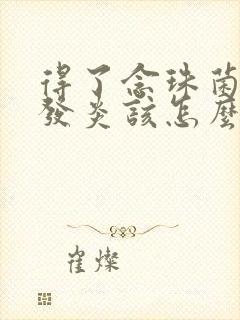 得了念珠菌
發炎該怎麼
崔燦